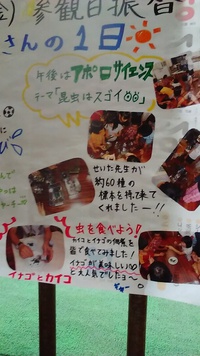 参観日振替
さんの1日
午後はアポロサイエンス
テーマ「昆虫はスゴイ」
せいた先生が
約60種の
標本を持って来て
くれましたー!!
虫を食べよう!
カイコとイナゴの佃煮を
皆で食べてみました!
イナゴが美味しい
と大人気でしたョ〜
イナゴとカイコ